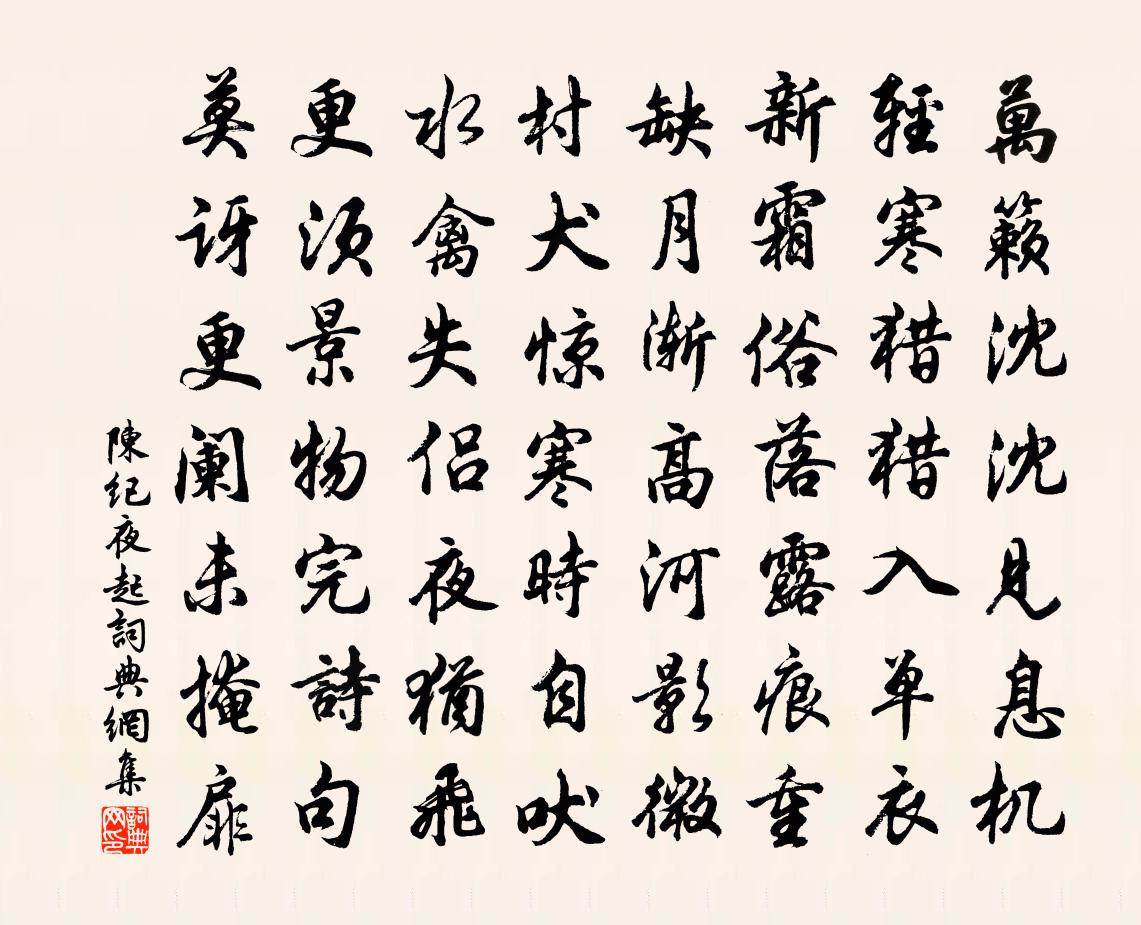 萬籁沈沈見息机
輕寒猎猎入单衣
新霜俗落露痕重
缺月渐高河影微
村犬惊寒時自吠
水禽失侣夜猶飛
更须景物完詩句
莫讶更阑未掩扉
陳纪夜起詞典網集
詞典网印